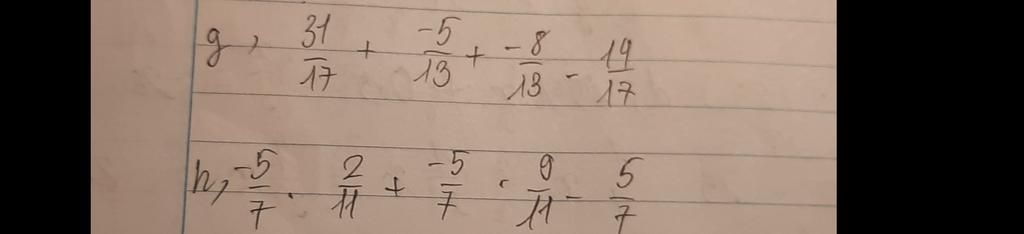 g, 31/17 + -5/13 + -8/13 - 14/17
h, -5/7 . 2/11 + -5/7 . 9/11 - 5/7